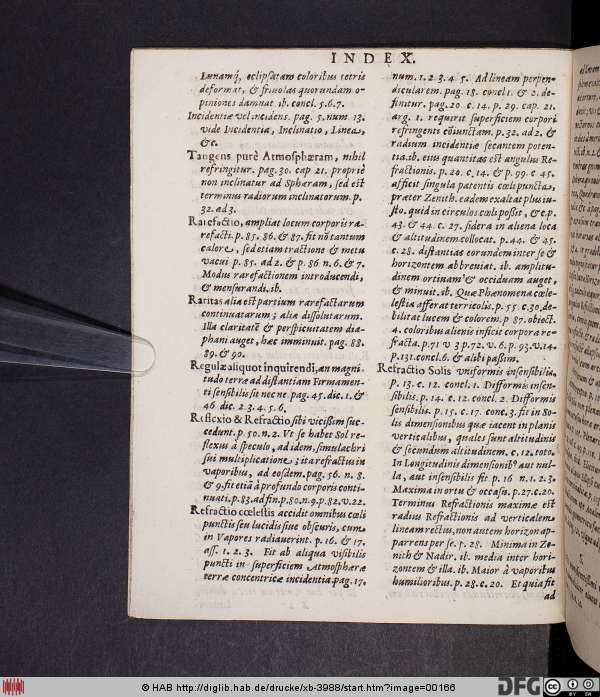 INDEX.
Lunamq́, eclipsatam coloribus tetris
deformat, & friuolas quorundam o-
piniones damnat. ib. concl. 5.6.7.
Incidentiæ vel incidens. pag. 5. num. 13.
vide Incidentia, Inclinatio, Linea,
&c.
Tangens purè Atmosphæram, nihil
refringitur. pag. 30. cap 21. propriè
non inclinatur ad Sphæram, sed est
terminus radiorum inclinatorum. p.
32. ad 3.
Rarefactio, ampliat locum corporis ra-
refacti. p. 85. 86. & 87. fit nõ tantum
calore, sed etiam tractione & metu
vacui p. 85. ad 2. & p. 86 n. 6. & 7.
Modus rarefactionem introducendi,
& mensurandi. ib.
Raritas alia est partium rarefactarum
continuatarum; alia dissolutarum.
Illa claritatẽ & perspicuitatem dia-
phani auget, hæc imminuit. pag. 88.
89. & 90.
Regulæ aliquot inquirendi, an magni
tudo terræ ad distantiam Firmamen-
ti sensibilis sit nec ne. pag. 45. dic. 1. &
46 dic. 2 3. 4. 5. 6.
Reflexio & Refractio sibi vicissim suc-
cedunt. p. 50. n. 2. Vt se habet Sol re-
flexus à speculo, ad idem, simulachri
sui multiplicatione; ita refractus in
vaporibus, ad eosdem. pag. 56. n. 8.
& 9. fit etiã à profundo corporis conti-
nuati. p. 83. ad fin. p. 80. n. 9. p. 82. v. 22.
Refractio cœlestis accidit omnibus cœli
punctis seu lucidis siue obscuris, cum
in Vapores radiauerint. p. 16. & 17.
ass. 1. 2. 3. Fit ab aliqua visibilis
puncti in superficiem Atmosphæræ
terræ concentricæ incidentia. pag. 17.
num. 1. 2. 3. 4 5. Ad lineam perpen-
dicularem. pag. 18. concl 1. & 2. de-
finitur. pag. 20 c. 14. p. 29. cap. 21.
arg. 1. requirit superficiem corpori
refringenti cõiunctam. p. 32. ad 2. &
radium incidentiæ secantem poten-
tia. ib. eius quantitas est angulus Re-
fractionis. p. 20. c. 14. & p. 99. c 45.
afficit singula patentis cœli puncta,
præter Zenith. eadem exaltat plus iu-
sto. quid in circulos cœli possit, & c. p.
43. & 44. c. 27. sidera in aliena loca
& altitudinem collocat. p. 44. & 45.
c. 28. distantias eorundem inter se &
horizontem abbreuiat. ib. amplitu-
dinem ortiuam & occiduam auget,
& minuit. ib. Quæ Phænomena cœle-
lestia afferat terricolis. p. 55. c. 30. de-
bilitat lucem & colorem. p 87. obiect.
4. coloribus alienis inficit corpora re-
fracta. p. 71 v 3 p. 72. v. 6. p. 93. v. 14.
p. 131. concl. 6. & alibi passim.
Refractio Solis vniformis insensibilis.
p. 13. c. 12. concl. 1. Difformis insen-
sibilis. p. 14. c. 12. concl. 2. Difformis
sensibilis. p. 15. c. 17. conc. 3. fit in So-
lis dimensionibus quæ iacent in planis
verticalibus, quales sunt altitudinis
& secundum altitudinem. c. 12. toto.
In Longitudinis dimensionibꝰ aut nul-
la, aut insensibilis fit. p. 16 n. 1. 2. 3.
Maxima in ortu & occasu. p. 27. c. 20.
Terminus Refractionis maximæ est
radius Refractionis ad verticalem
lineam rectus, non autem horizon ap-
parrens per se. p. 28. Minima in Ze-
nith & Nadir. ib. media inter hori-
zontem & illa. ib. Maior à vaporibus
humilioribus. p. 28. c. 20. Et quia fit
ad
© HAB http://diglib.hab.de/drucke/xb-3988/start.htm?image=00166
DFG
CC BY SA